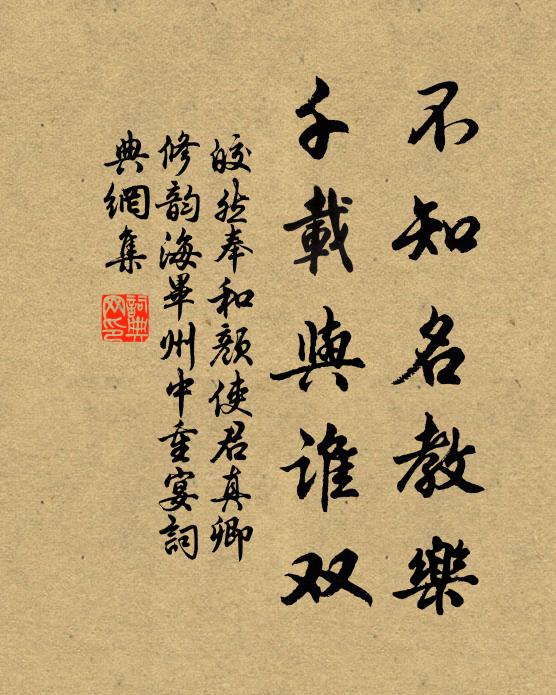 不知名教樂
千載與誰双
皎然奉和顏使君真卿
修韵海畢州中重宴詞
典網集
詞典网印